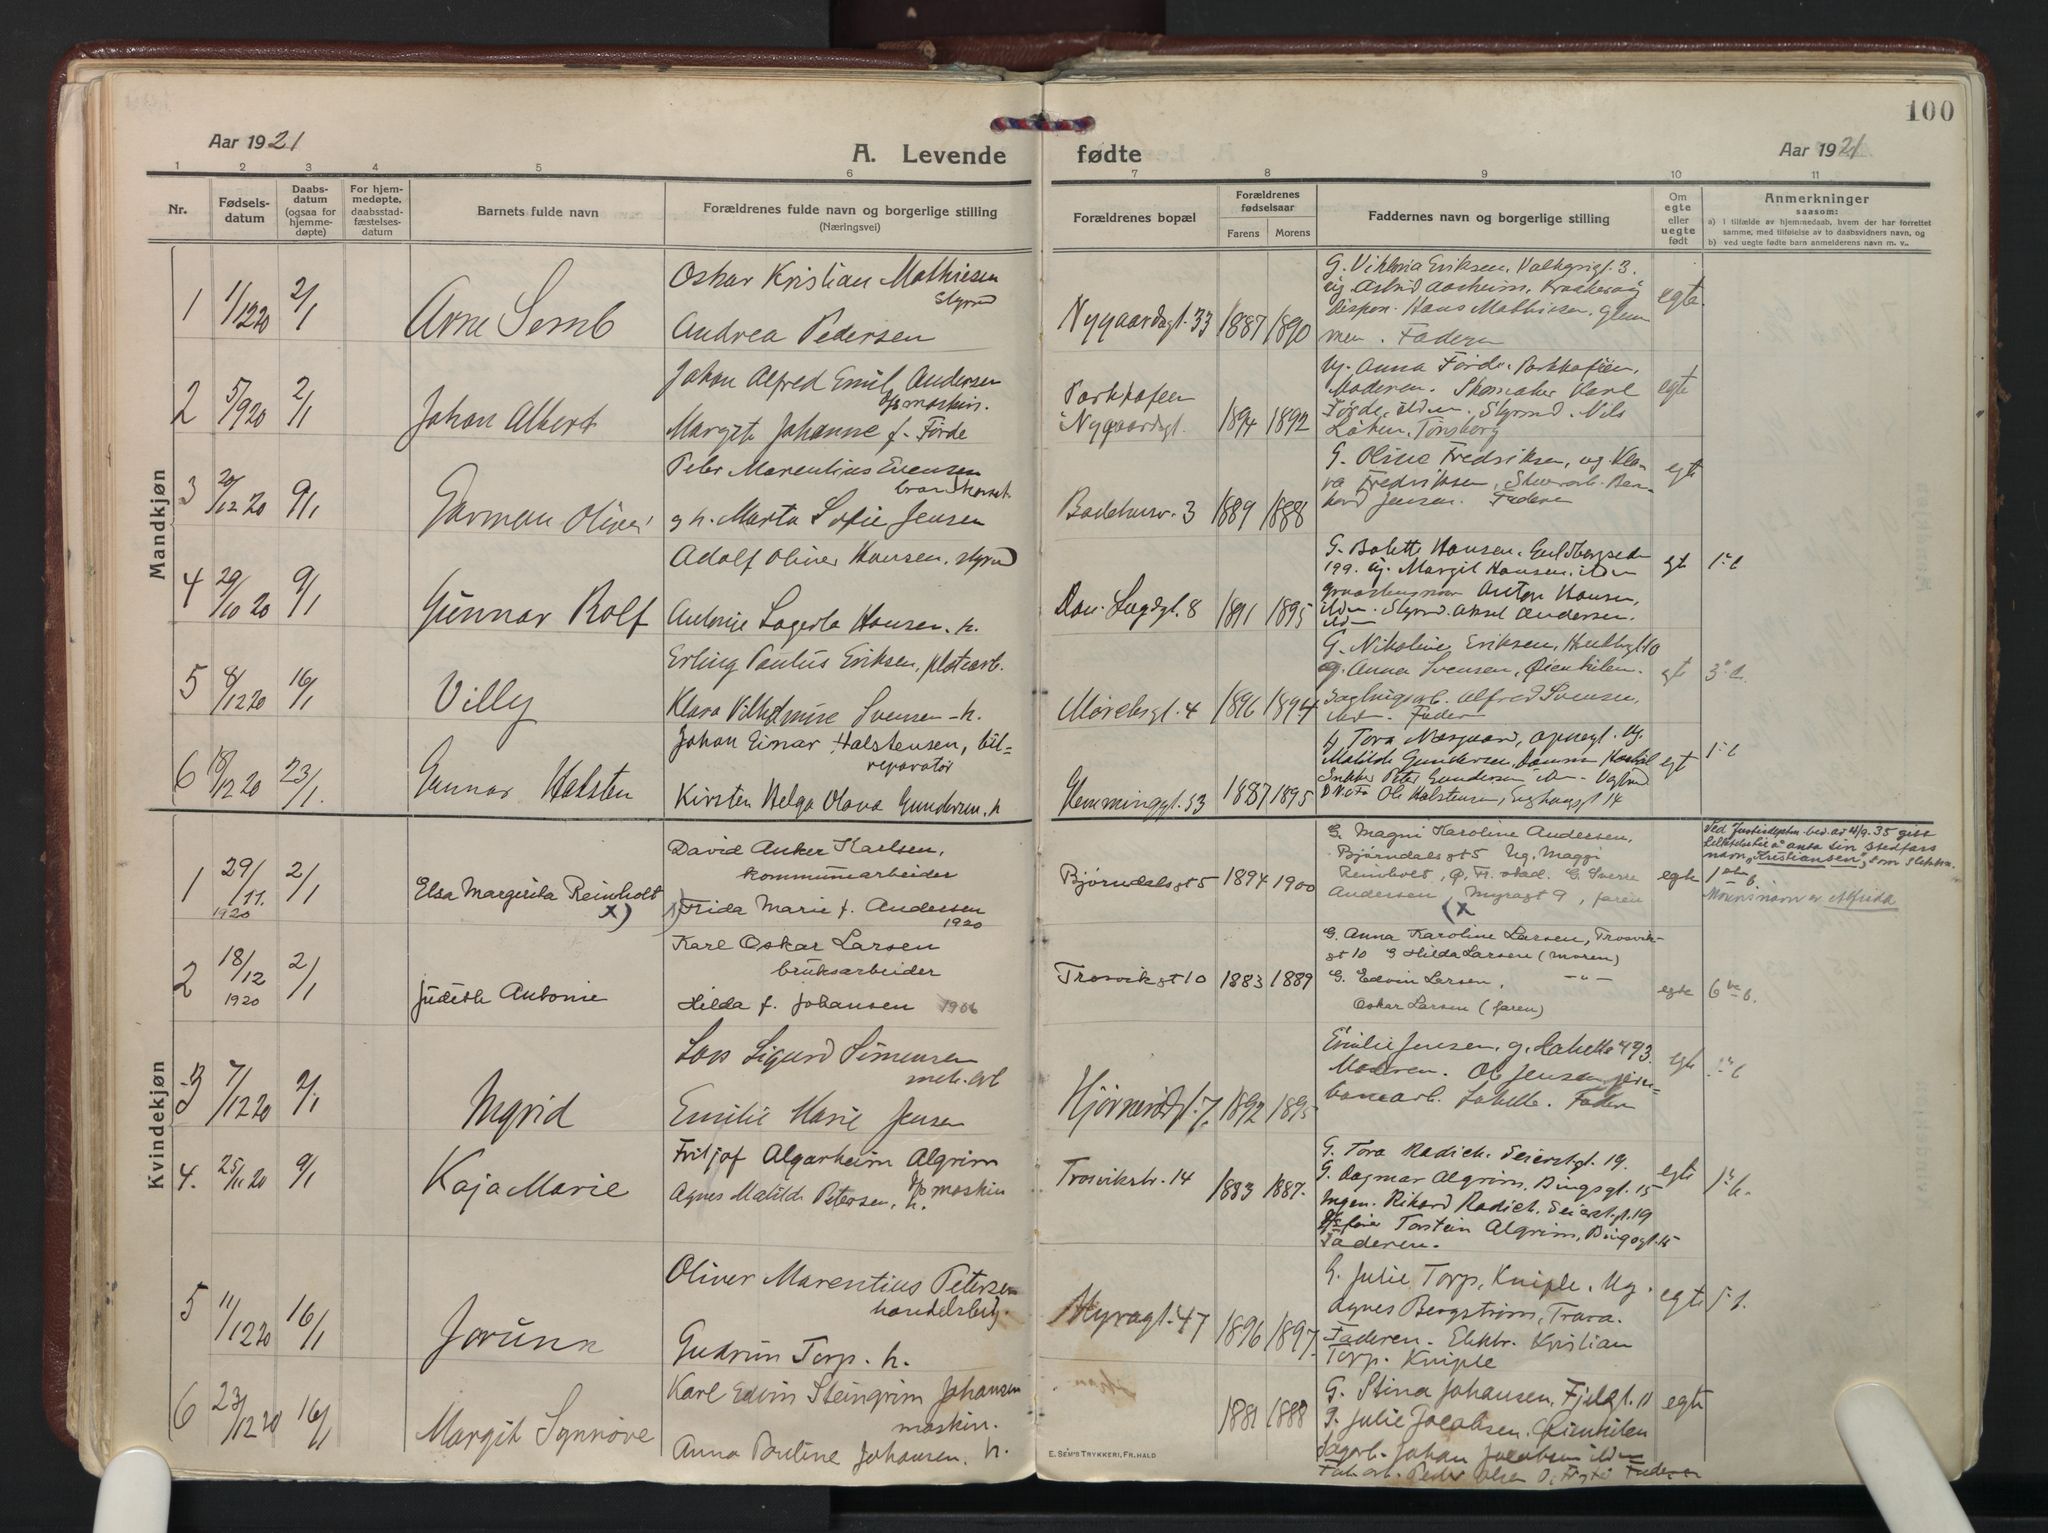 100
Aar 1921
A. Levende fødte
Aar 1921
1 2 3 4 5 6 7 8 9 10 11
Nr.
Fødselsdatum
Daabsdatum (ogsaa for hjemmedøpte)
For hjemmedøpte, daabsstadfæstelsesdatum
Barnets fulde navn
Forældrenes fulde navn og borgerlige stilling
(Næringsvei)
Forældrenes bopæl
Forældrenes fødselsaar
Farens Morens
Faddernes navn og borgerlige stilling
Om egte eller uegte født
Anmerkninger
saasom:
a) I tilfælde av hjemmedaab, hvem der har forrettet samme, med tilføielse av to daabsvidners navn, og
b) ved uegte fødte barn anmelderens navn m. v..
Mandkjøn
1 1/12 20 2/1 Arne Semb
Oskar Kristian Mathiesen
styrmd
Andrea Pedersen
Nygaardsgt. 33 1887 1890
G. Viktoria Eriksen, Valkyrigt. 3.
Ug. Astrid Aasheim, Kraakerøy
Dispon. Hans Mathisen, Glem
men. Faderen
egte
2 5/9 20 2/1 Johan Albert
Johan Alfred Emil Andersen
moskin.
Margit Johanne f. Førde
Parkkafeen
i Nygaardsgt. 1894 1892
Ug. Anna Førde. Parkkafeen,
Moderen. Skomaker Karl
Førde, ildm. Styrmd. Nils
Løken, Tønsberg
egte
3 20/12 20 9/1 Garman Oliver
Peter Marentius Evensen
g h. Marta Sofie Jensen
Badehusv. 3 1889 1888
G. Oline Fredriksen, og Kla-
ra Fredriksen, Skoarb. Bern-
hard Jensen. Faderen
egte
4 29/10 20 9/1 Gunnar Rolf
Adolf Oliver Hansen, styrmd
Antonie Lagerta Hansen. h.
Dan. Legdgt. 8 1891 1895
G. Bolette Hansen, Guldbergsed
199. Ug. Margit Hansen, ildm
Anton Hansen,
ildm. Styrmd. Aksel Andersen.
ildm
egte 1ste b
5 8/12 20 16/1 Villy
Erling Paulus Eriksen, platearb.
Klara Vilhelmine Svensen h.
Mørchsgt. 4 1896 1894
G. Nikoline Eriksen, 10
g. Anna Svensen, Øienkilen.
Alfred Svensen,
Fader
egte 3die b.
6 18/12 20 23/1 Gunnar Halsten
Johan Einar Halstensen, bil-
reparatør
Kirsten Helga Olava Gundersen. h
Glemminggt. 53 1887 1895
Matilde Gundersen,
Snikker Peter Gundersen
Ole Halstensen, Enghaugt 14
egte 1ste b
Kvindekjøn
1 29/11 1920 2/1 Elsa Margirita Reinholt x)
David Anker Karlsen,
kommunearbeider
x) Frida Marie f. Andersen
1920
Bjørndalsgt 5 1894 1900
G. Magni Karoline Andersen,
Bjørndalsgt 5 Ug. Maggi
Reinholt, Ø. Fr.stad. G. Sverre
Andersen, Myragt 9, faren
(x
egte
Ved Justisdeptm. bev. av 4/9. 35 gitt
tillatelse til å anta sin stedfars
navn, "Kristiansen", som slektsn.
1ste b.
Morens navn er Alfrida
2 18/12 1920 2/1 Judith Antonie
Karl Oskar Larsen
bruksarbeider
Hilda f. Johansen 1906
Trosvikgt 10 1883 1889
G. Anna Karoline Larsen, Trosvik-
gt 10 G Hilda Larsen (moren)
G. Edvin Larsen, — " —
Oskar Larsen (faren)
egte 6te b.
3 7/12 20 2/1 Ingrid
Lars Sigurd Simensen
mek. arb
Emilie Marie Jensen
Hjørnerødgt. 7. 1892 1895
Emilie Jensen, g. Labette 493.
Moderen. Ole Jensen, jern-
banearb. Labette. Fader
egte 1ste b
4. 25/11 20 9/1 Kaja Marie
Fritjof Algarheim Algrim
Agnes Matilde Petersen, h. moskin
Trosvikstr. 14 1883 1887.
G. Tora Radich. Seierstgt. 19.
G. Dagmar Algrim, Bingsgt. 15
Ingen. Rikard Radich. Seierstgt. 19
Torstein Algrim, Bingsgt. 15
Faderen.
egte 1ste b.
5 11/12 20 16/1 Jorunn
Oliver Marentius Petersen
handelsbetj.
Gudrun Torp. h.
Myragt. 47 1896 1897.
G. Julie Torp, Kniple. Ug.
Agnes Bergstrøm, Trara.
Faderen. Elektr. Kristian
Torp. Kniple
egte
6 23/12 20 16/1 Margit Synnøve
Karl Edvin Steingrim Johansen
moskin.
Anna Pauline Johansen. h.
1881 1888
G. Stina Johansen, Fjeldgt. 11
G. Julie Jacobsen, Øienkilen
Sagarb. Johan Jacobsen ildm
Fabarb. Peder Olsen Faderen
egte
E. SEM'S TRYKKERI, FR.HALD